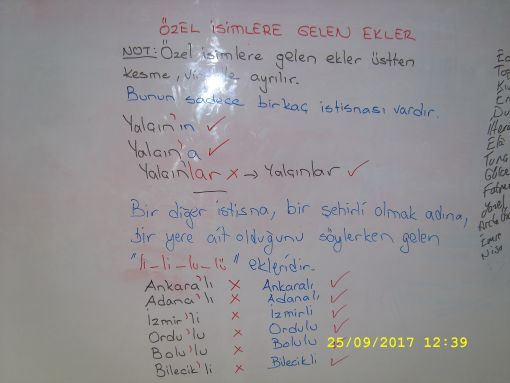 ÖZEL İSİMLERE GELEN EKLER
NOT: Özel isimlere gelen ekler üstten
kesme, ayrılır.
Bunun sadece birkaç istisnası vardır.
Yalçın'ın ✓
Yalçın'a ✓
Yalçın'lar x → Yalçınlar ✓
Bir diğer istisna, bir şehirli olmak adına,
bir yere ait olduğunu söylerken gelen
"lı-li-lu-lü" ekleridir.
Ankara'lı x Ankaralı ✓
Adana'lı x Adanalı ✓
İzmir'li x İzmirli ✓
Ordu'lu x Ordulu ✓
Bolu'lu x Bolulu
Bilecik'li x Bilecikli ✓
25/09/2017 12:39